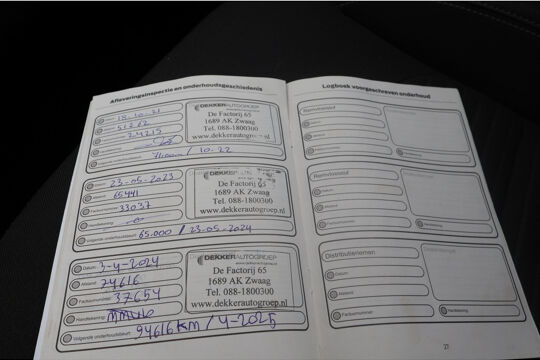 Afleveringsinspectie en onderhoudsgeschiedenis
18-10-21
51262
24215
10-22
DEKKERAUTOGROEP
De Factorij 65
1689 AK Zwaag
Tel. 088-1800300
www.dekkerautogroep.nl
23-05-2023
65441
Factuurnummer: 33037
Volgende onderhoudsbeurt: 65.000 / 23-05-2024
DEKKER
De Factorij 65
1689 AK Zwaag
Tel. 088-1800300
www.dekkerautogroep.nl
Datum: 3-4-2024
Afstand: 74616
Factuurnummer: 37654
Handtekening:
Volgende onderhoudsbeurt: 94616 km / 4-2025
DEKKERAUTOGROEP
www.dekkerautogroep.nl
De Factorij 65
1689 AK Zwaag
Tel. 088-1800300
www.dekkerautogroep.nl
Logboek voorgeschreven onderhoud
Remvloeistof
Datum:
Afstand:
Factuurnummer:
Handtekening:
Remvloeistof
Datum:
Afstand:
Factuurnummer:
Handtekening:
Distributieriemen
Datum:
Afstand:
Factuurnummer:
Handtekening:
27